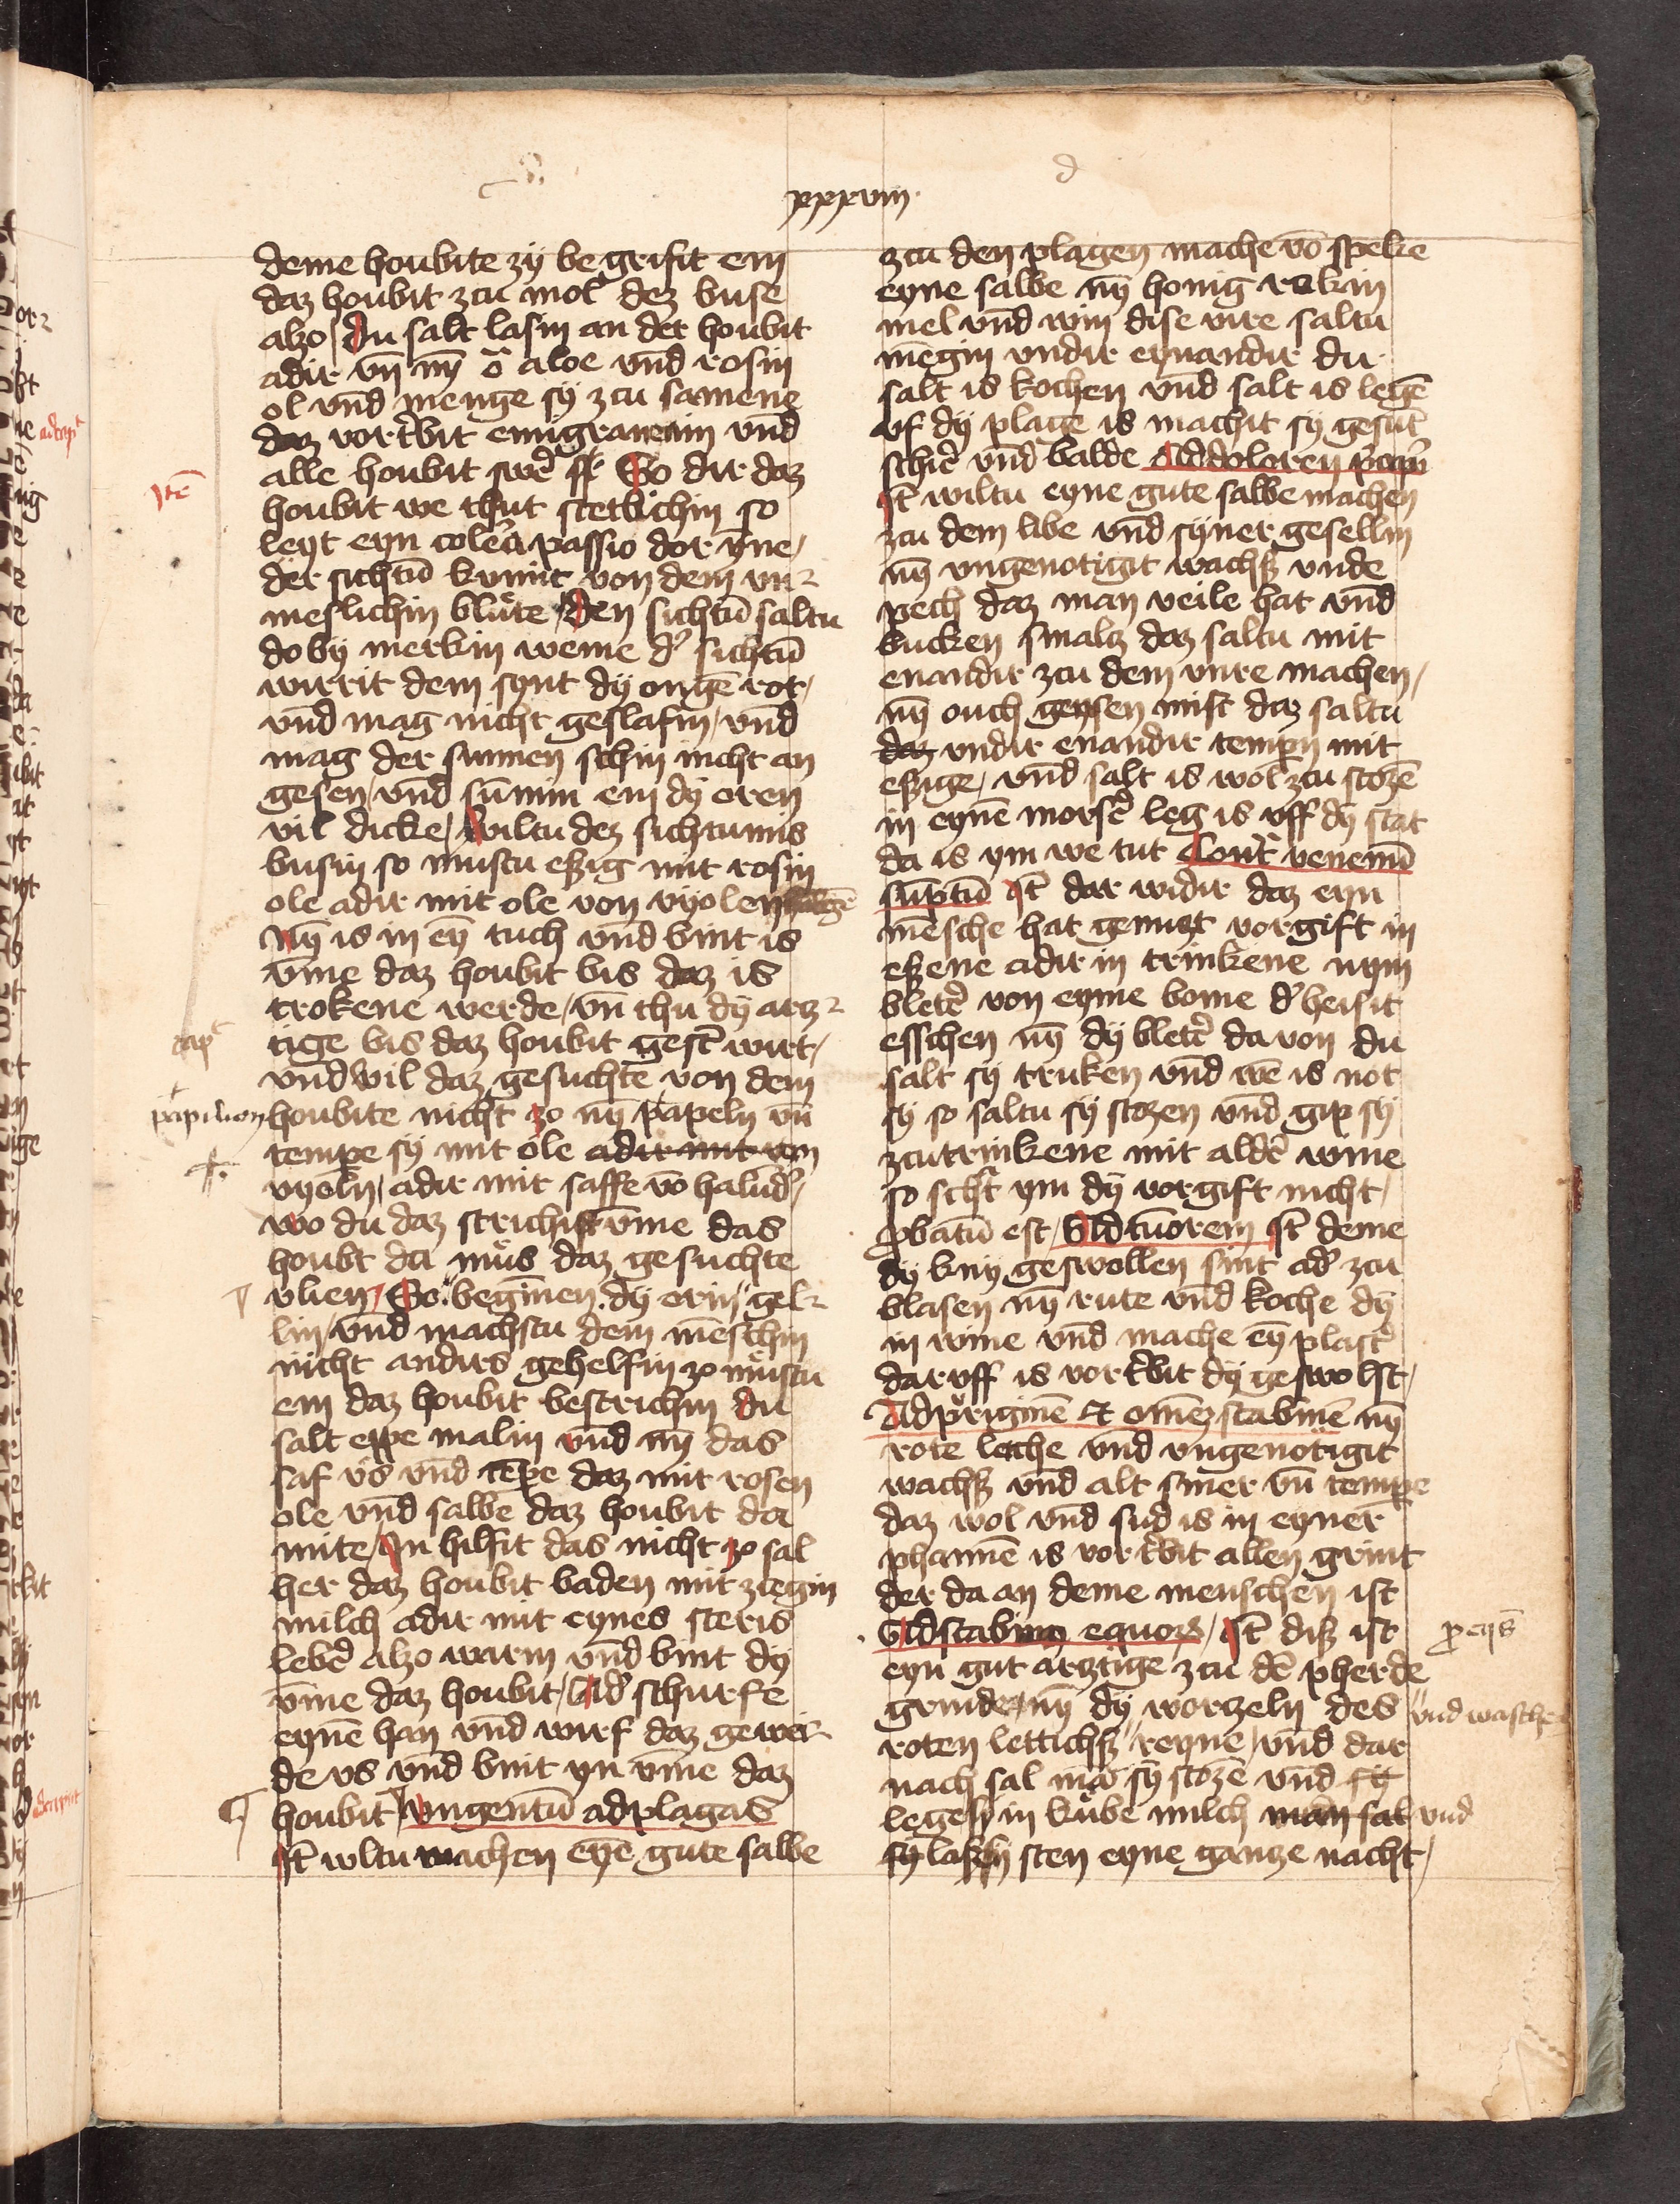 xxxviii
deme houbite zÿ be grifit em
daz houbit zcu mol dez buse
alzo du salt lasin an der houbit
adir vn̄ nȳ aloe vnd rosin
ol vnd menge sÿ zcu samene
daz vortribit emigraneam vnd
alle houbit swer So dir daz
Itē
houbit we thut stetlichin so
leyt eyn colera passio dor ȳne
der sichtū kumit von dem vn
meslichin blute den sichtū saltu
do bÿ merkin weme d' sichtū
wirrit dem synt dÿ ougē rot
vnd mag nicht geslafin vnd
mag der sunnen schin nicht an
gesen vnd sūmin em dÿ oren
vil dicke wiltu dez sichtumis
busin so mustu eßig mit rosin
ole adir mit ole von vÿolen
nȳ is in eȳ tuch vnd bint is
v̄me daz houbit bis daz is
trokene werde vn̄ thu dÿ arz
tige bis daz houbit gest' wirt
vnd wil daz gesuchte von dem
papilion houbite nicht zo nȳ papeln vn̄
tempe sÿ mit ole adir mit von
vÿoln adir mit saffe vō halūd'
wo du daz strichist v̄me das
houbt da mus daz gesuchte
vlien So beginnen dÿ orin gel
lin vnd machstu dem mēschin
nicht andirs gehelfin zo mustu
em daz houbit bestrichin du
salt eppe malin vnd nȳ das
saf vs vnd tēpe daz mit rosen
ole vnd salbe daz houbit da
mite In hilfit das nicht zo sal
her daz houbit baden mit ziegin
milch adir mit eynes steris
leber alzo warm vnd bint dÿ
v̄me daz houbit Ad' schurfe
eynē han vnd wirf daz gewei
de vs vnd bint yn v̄me daz
houbit vngentū ad plagas
It wltu machen eyē gute salbe
zcu den plagen mache vō speke
eyne salbe nȳ honig rokin
mel vnd win dise vire saltu
mēgin vndir eynandir du
salt is kochen vnd salt is legē
vf dÿ plage is machit sÿ gesūt
schir vnd balde Ad dolorem
It wiltu eyne gute salbe machen
zcu dem libe vnd sÿner gesellin
nȳ vngenotigit wachß vnde
pech daz man veile hat vnd
bucken smalz daz saltu mit
enandir zcu dem vure machen
nȳ ouch gensen mist daz saltu
daz vndir enandir tempn mit
eßige vnd salt is wol zcu stozē
in eynē morser leg is vff dÿ stat
da is ym we tut Contra venenū
sūptū It dar widir daz eyn
mēsche hat genuzt vorgift in
eßene adir in trinkene nym
bleter von eyme bome d' heisit
esschen nȳ dÿ bleter da von du
salt sÿ truken vnd wē is not
sÿ so saltu sÿ stozen vnd gip sÿ
zcu trinkene mit alder wine
so schat ym dÿ vorgift nicht
probatū est Ad tūorem It deme
dÿ knÿ geswollen sint ad' zcu
blasen nȳ rute vnd koche dÿ
in wine vnd mache eȳ plaster
dar vff is vortribit dÿ geswolst
Ad pruriginē et omēz scabiē nȳ
rote letche vnd vngenotigit
wachß vnd alt smer vn̄ tempe
daz wol vnd sud is in eyner
phannē is vortribit allen grint
der da an deme menschen ist
Ad scabiem equorum It diß ist
eyn gut arztige zcu dē pherde
grinde nȳ dÿ worzeln des
vnd waschē
roten lettichß reyne vnd dar
nach sal mā sÿ stozē vnd
legen in kube milch man sal vnd
sÿ laßen sten eyne gantze nacht